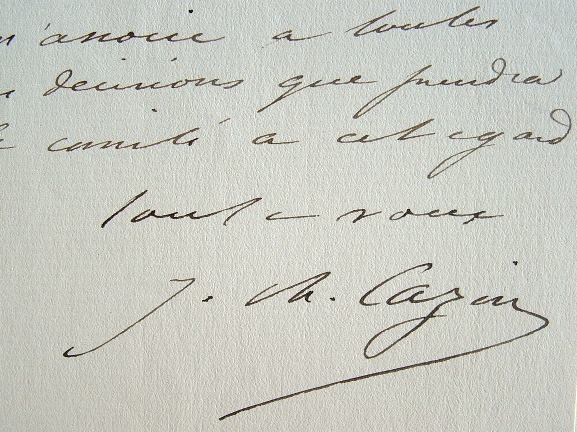 m'associe a toutes
decisions que prendra
le comité a cet egard
tout a vous
J. Ch. Cazin